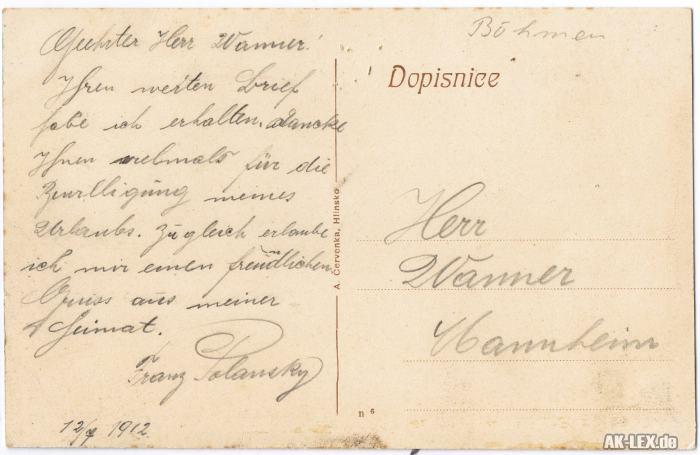 Geehrter Herr Wanner!
Ihren werten Brief
habe ich erhalten. dancke
Ihnen vielmals für die
Bewilligung meines
Urlaubs. Zugleich erlaube
ich mir einen freundlichen
Gruss aus meiner
Heimat.
Franz Polansky
12/7 1912
A. Červenka, Hlinsko
Böhmen
Dopisnice
Herr
Wanner
Mannheim
n 6
AK-LEX.de